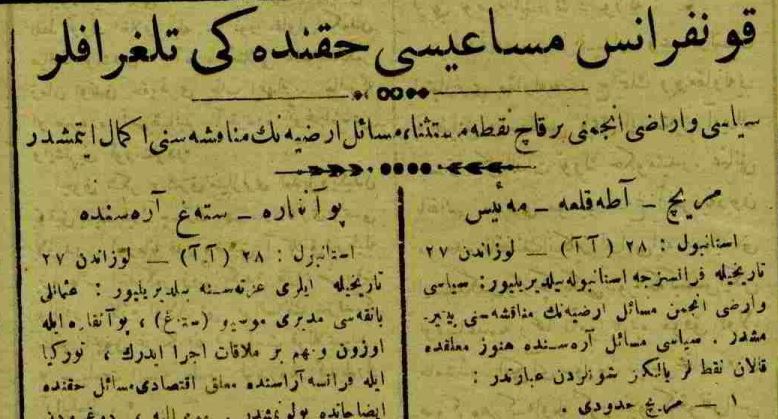 قونفرانس مساعیسی حقنده کی تلغرافلر
سیاسی و اراضی انجمنی بر قاچ نقطه مستثنا، مسائل ارضیه‌نك مناقشه‌سنی اکمال ایتمشدر
مریچ ـ آطه‌قلعه ـ مه‌ئیس
استانبول : ٢٨ (آ آ) — لوزاندن ٢٧
تاریخیله فرانسزجه استانبوله بیلدیریلیور: سیاسی
وارضی انجمن مسائل ارضیه‌نك مناقشه‌سنی بیتیر-
مشدر . سیاسی مسائل آره‌سنده هنوز معلقده
قالان نقطه‌لر یالکز شونلردن عبارتدر :
١ — مریج حدودی .
پوآنقاره ـ سته‌غ آره‌سنده
استانبول : ٢٨ (آ.آ) — لوزاندن ٢٧
تاریخیله ایلری غزته‌سنه بیلدیریلیور : عثمانلی
بانقه‌سی مدیری موسیو (سته‌غ) ، پوآنقاره ایله
اوزون و مهم بر ملاقات اجرا ایدرك ، تورکیا
ایله فرانسه آراسنده معلق اقتصادی مسائل حقنده
ایضاحاتده بولونمشدر .